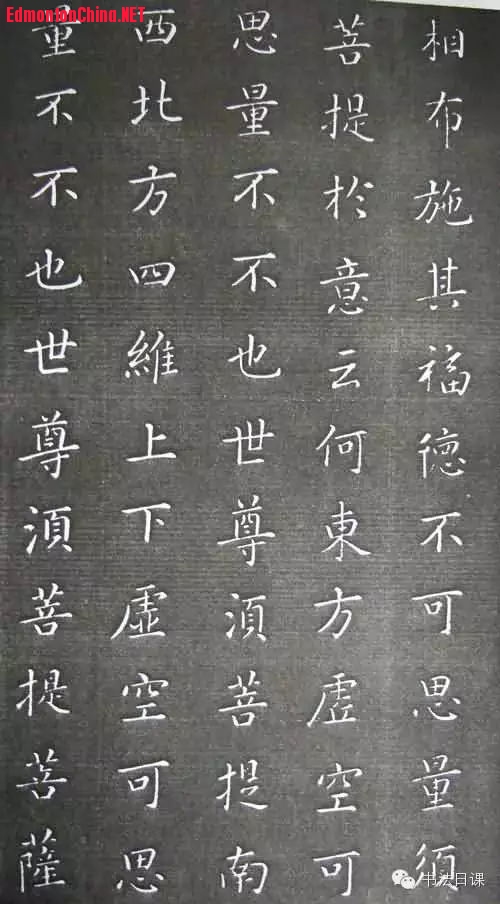 EdmontonChina.NET
相布施其福德不可思量須
菩提於意云何東方虛空可
思量不不也世尊須菩提南
西北方四維上下虛空可思
量不不也世尊須菩提菩薩
书法日课